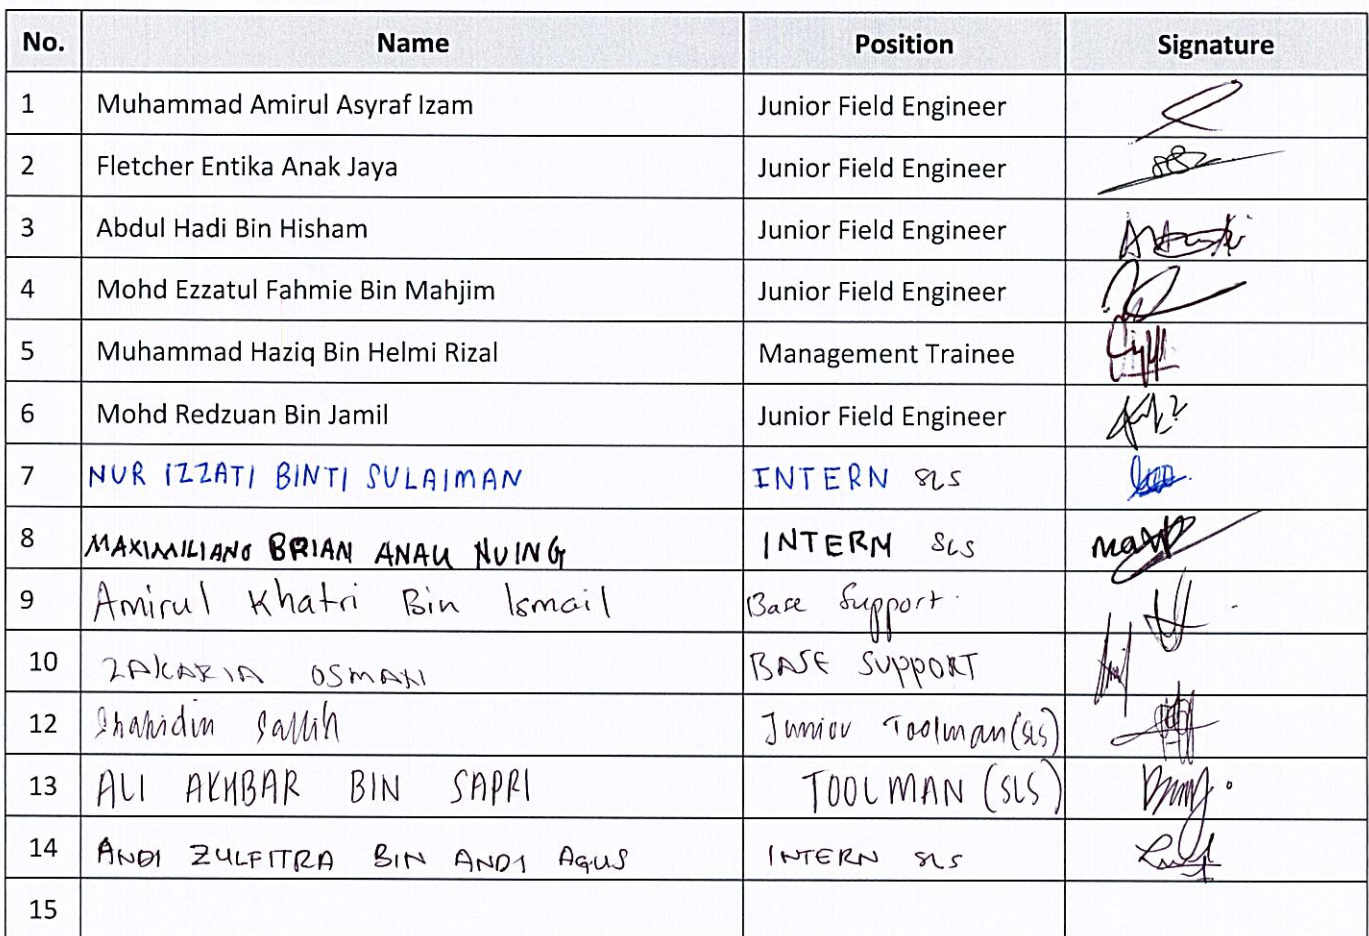 No. Name Position Signature
1 Muhammad Amirul Asyraf Izam Junior Field Engineer
2 Fletcher Entika Anak Jaya Junior Field Engineer
3 Abdul Hadi Bin Hisham Junior Field Engineer
4 Mohd Ezzatul Fahmie Bin Mahjim Junior Field Engineer
5 Muhammad Haziq Bin Helmi Rizal Management Trainee
6 Mohd Redzuan Bin Jamil Junior Field Engineer
7 NUR IZZATI BINTI SULAIMAN INTERN SLS
8 MAXIMILIANO BRIAN ANAK NUING INTERN SLS
9 Amirul Khatri Bin Ismail Base Support
10 ZAKARIA OSMAN BASE SUPPORT
12 Shahidin Sallih Junior Toolman (SLS)
13 ALI AKHBAR BIN SAPRI TOOLMAN (SLS)
14 ANDI ZULFITRA BIN ANDI AGUS INTERN SLS
15